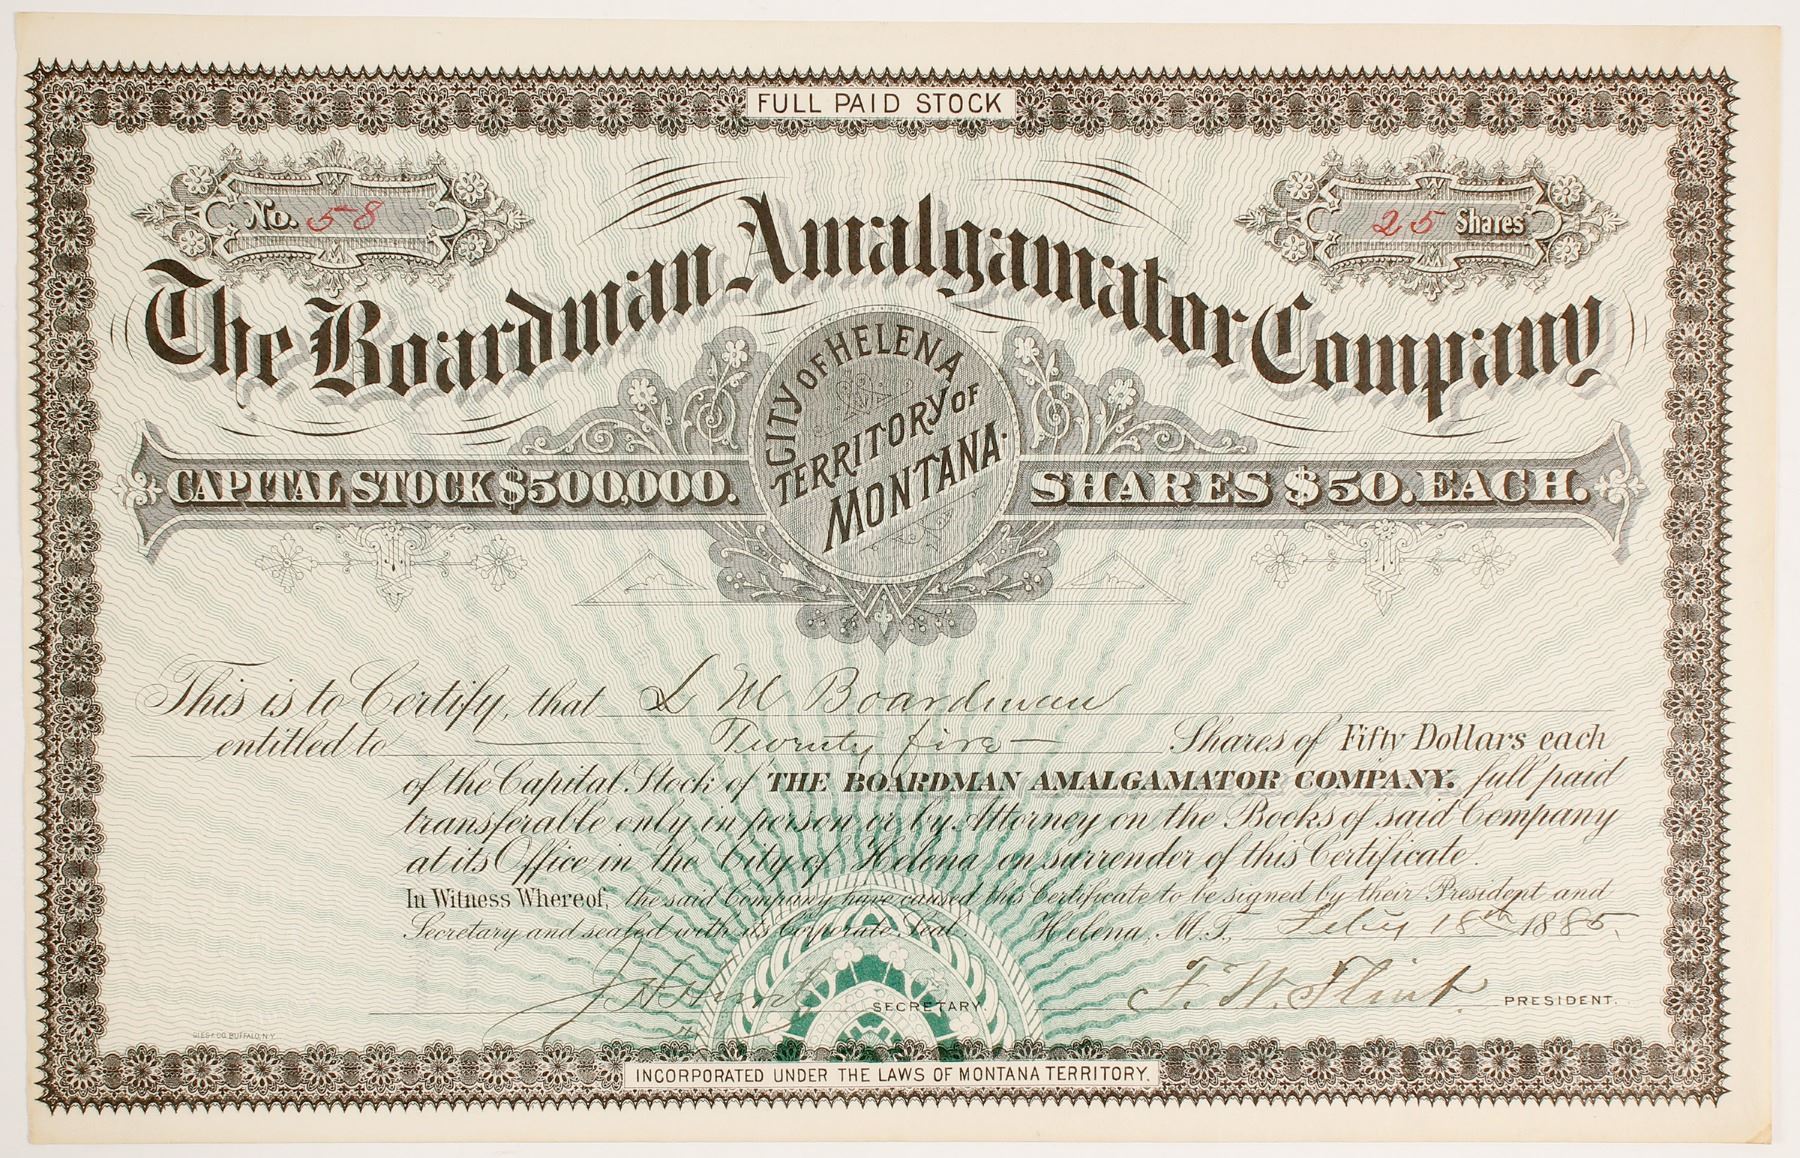 FULL PAID STOCK
No. 58
25 Shares
The Boardman Amalgamator Company
CITY OF HELENA
TERRITORY OF
MONTANA.
CAPITAL STOCK $500,000.
SHARES $50. EACH.
This is to Certify, that L M Boardman
entitled to Twenty five Shares of Fifty Dollars each
of the Capital Stock of THE BOARDMAN AMALGAMATOR COMPANY. full paid
transferable only in person or by Attorney on the Books of said Company
at its Office in the City of Helena on surrender of this Certificate.
In Witness Whereof, the said Company have caused this Certificate to be signed by their President and
Secretary and sealed with its Corporate Seal. Helena, M.T., Feby 18th 1885.
SECRETARY. F. W. Flint PRESIDENT.
& CO. BUFFALO, N.Y.
INCORPORATED UNDER THE LAWS OF MONTANA TERRITORY.